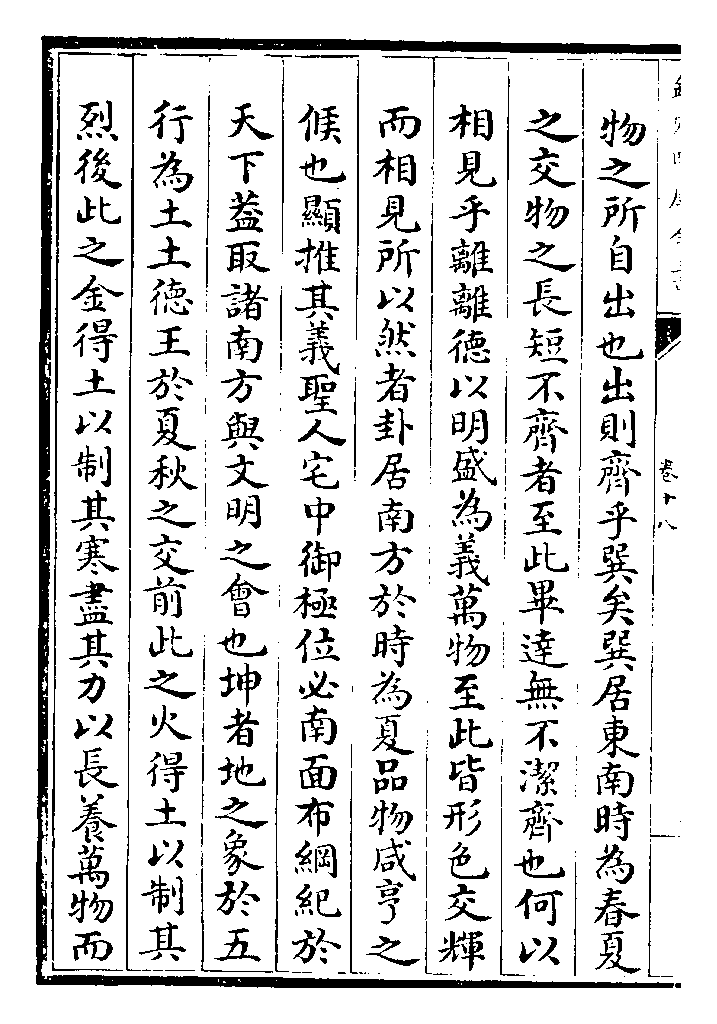 欽定四庫全書
卷十八
物之所自出也出則齊乎巽矣巽居東南時為春夏
之交物之長短不齊者至此畢達無不潔齊也何以
相見乎離離德以明盛為義萬物至此皆形色交輝
而相見所以然者卦居南方於時為夏品物咸亨之
候也顯推其義聖人宅中御極位必南面布綱紀於
天下葢取諸南方與文明之會也坤者地之象於五
行為土土德王於夏秋之交前此之火得土以制其
烈後此之金得土以制其寒盡其力以長養萬物而